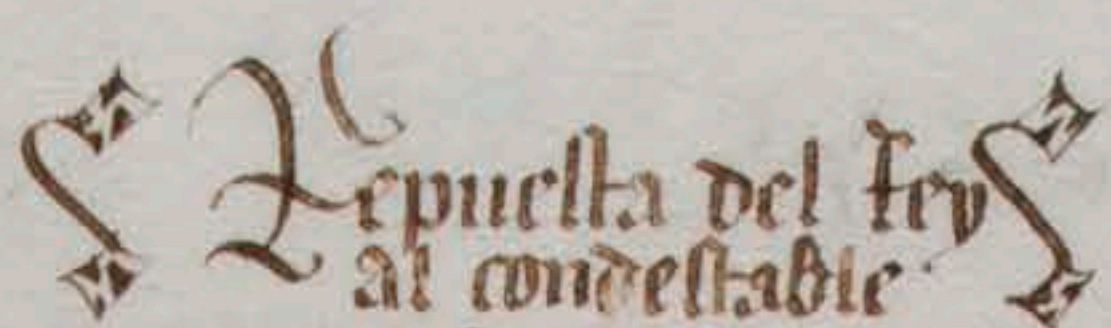 Repuesta del rey
al condestable